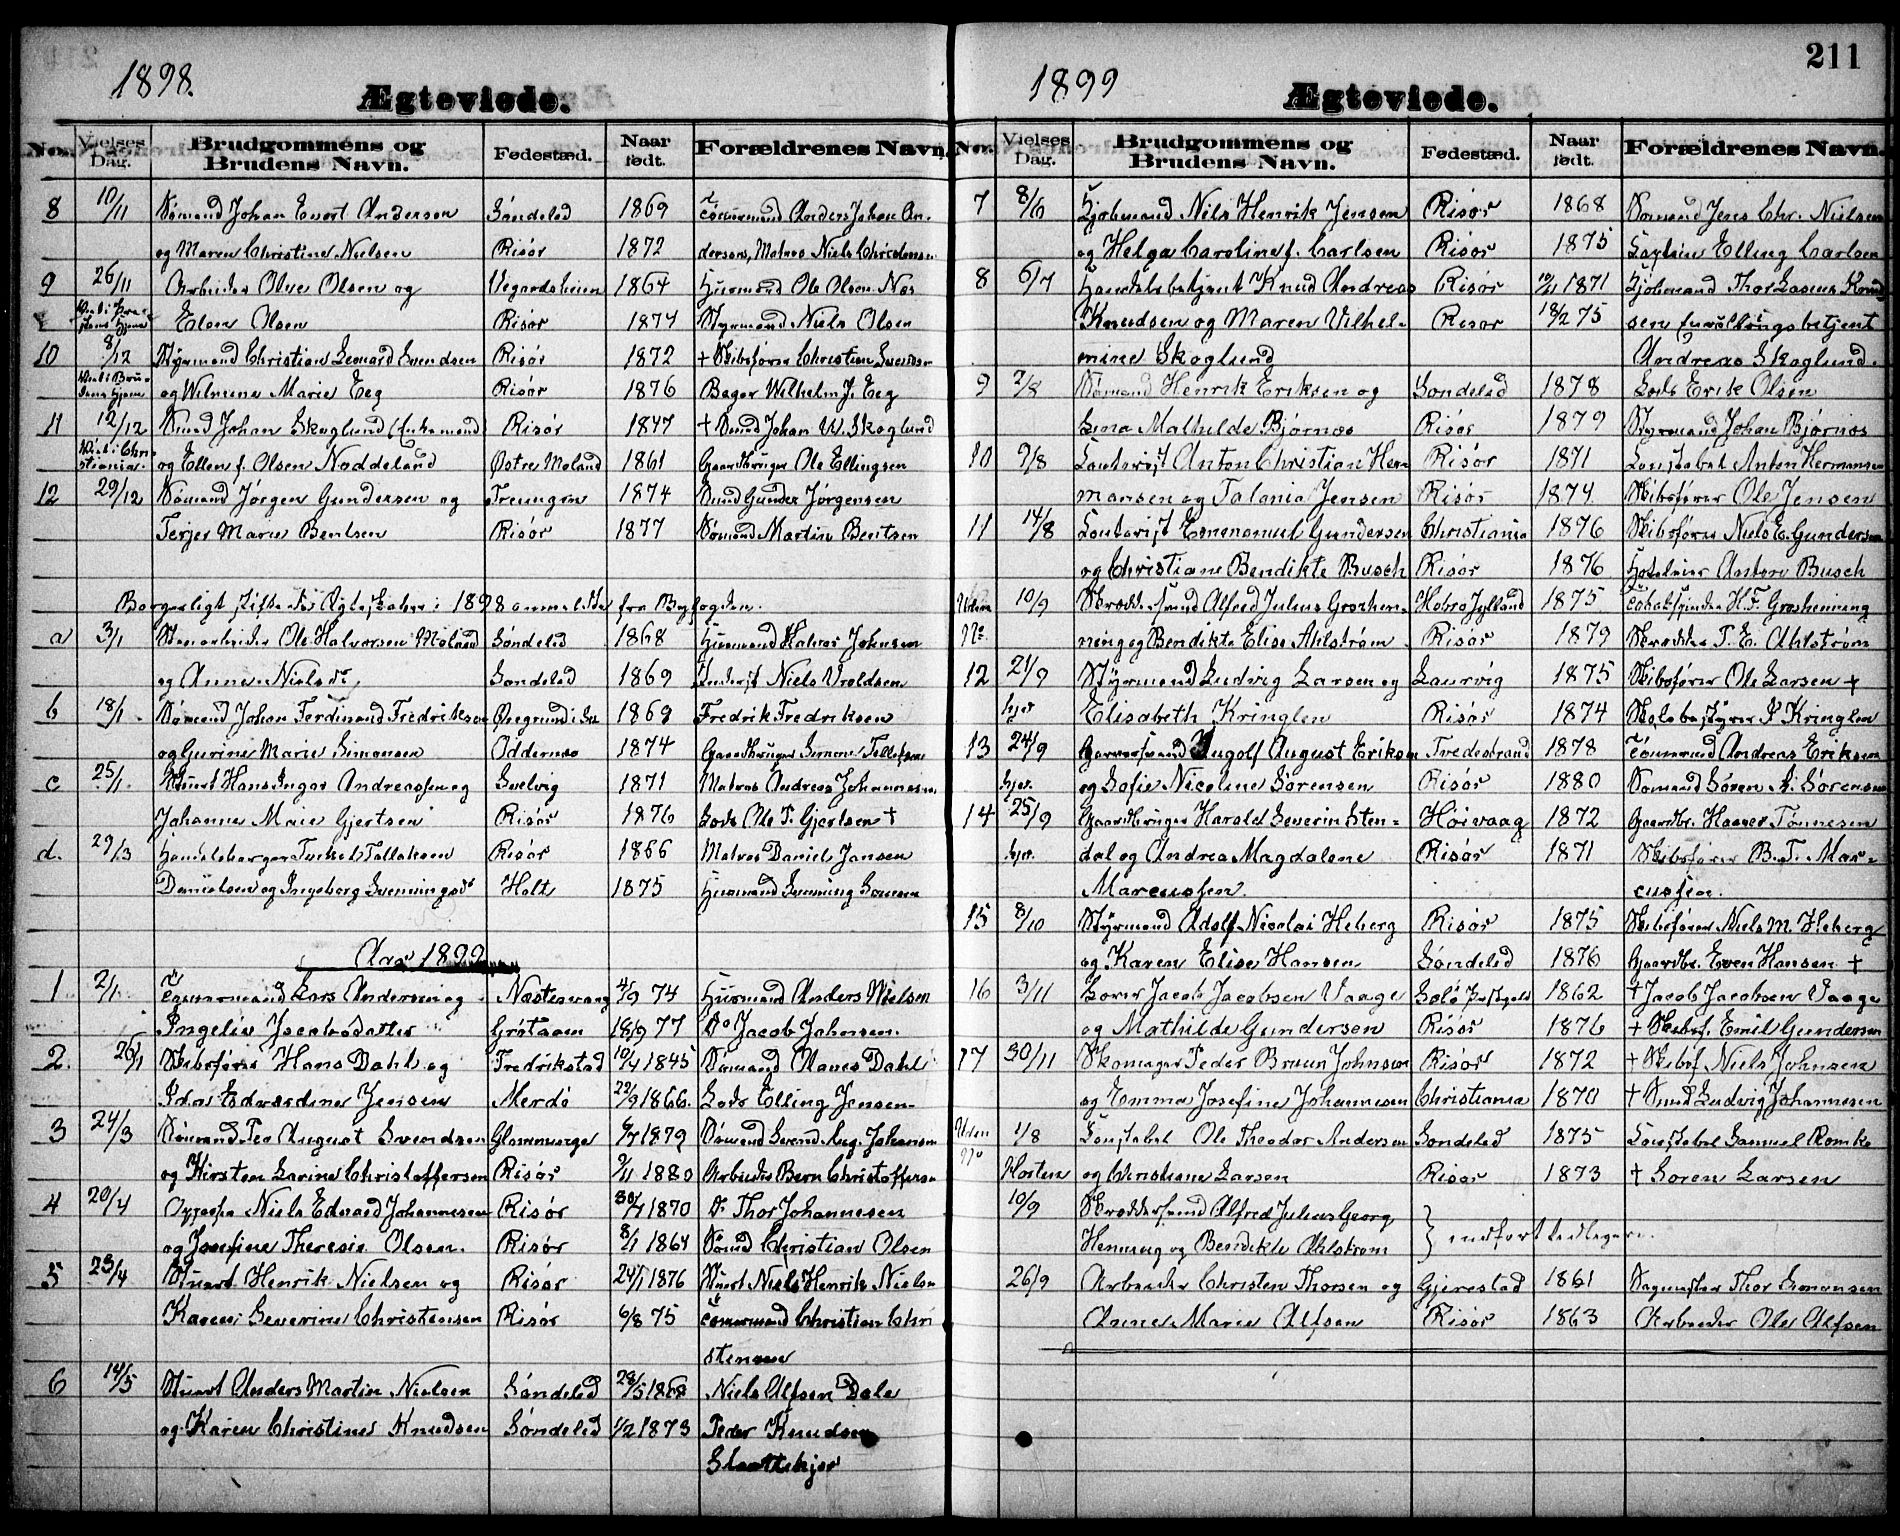 1898.
Ægteviede.
No. Vielses Dag. Brudgommens og Brudens Navn. Fødested. Naar født. Forældrenes Navn.
8 10/11 Sømand Johan Evert Andersen Søndeled 1869 Tømmermand Anders Johan An-
og Maren Christine Nielsen Risør 1872 dersens, Matros Niels Christensen
9 26/11 Arbeider Olve Olsen og Vegardsheien 1864 Huusmand Ole Olsen Næs
Elen Olsen Risør 1874 Styrmand Niels Olsen
10 8/12 Styrmand Christian Leonard Svendsen Risør 1872 + Skibsfører Christian Svendsen
og Wilmine Marie Eeg Risør 1876 Bager Wilhelm J. Eeg
11 12/12 Smed Johan Skoglund (Enkemand) Risør 1847 + Smed Johan W. Skoglund
Viet i Christiania. og Ellen f. Olsen Noddeland Østre Moland 1861 Gaardbruger Ole Ellingsen
12 29/12 Sømand Jørgen Gundersen og Treungen 1874 Smed Gunder Jørgensen
Terjer Marie Bentsen Risør 1877 Sømand Martin Bentsen
Borgerligt stiftede Ægteskaber i 1898 anmeldte fra Byfogden.
a 3/1 Ole Halvorsen Moland Søndeled 1868 Huusmand Halvor Johnsen
og Anne Nielsdr Søndeled 1869 Niels Vroldsen
b 18/1 Sømand Johan Ferdinand Fredriksen Øregrund i 1869 Fredrik Fredriksen
og Gurine Marie Simonsen Oddernes 1874 Gaardbruger Simon Tellefsen
c 25/1 Stuert Hans Inger Andreassen og Svelvig 1871 Matros Andreas Johannesen
Johanne Marie Gjertsen Risør 1876 Lods Ole T. Gjertsen +
d. 29/3 Handelsborger Terkel Tallaksen Risør 1866 Matros Daniel Jansen
Danielsen og Ingeborg Svenningsdr Holt 1875 Huusmand Svenning
Aar 1899
1 2/1 Tømmermand Lars Andersen og Næstesvang 4/9 74 Huusmand Anders Nielsen
Ingeleiv Jacobsdatter Grøtaaen 18/9 77 Do Jacob Johnsen.
2. 26/1 Skibsfører Hans Dahl og Fredrikstad 10/4 1845 Sømand Claves Dahl
Ida Edvardine Jensen Merdø 22/9 1866. Lods Elling Jensen
3 24/3 Sømand Teo August Svendsen 6/7 1879 Sømand Svend Aug. Johansen
og Kirsten Larine Christoffersen Risør 9/11 1880 Arbeider Bern Christoffersen
4 20/4 Niels Edvard Johannesen Risør 30/7 1870 Do Thor Johannesen
og Josefine Theresie Olsen. Risør 8/1 1864 Sømd Christian Olsen
5 23/4 Stuert Henrik Nielsen og Risør 24/1 1876 Stuert Niels Henrik Nielsen
Karen Severine Christensen Risør 6/8 75 Tømermand Christian Chri
stensen
6 14/5 Stuert Anders Martin Nielsen Søndeled 28/5 1868 Niels Alfsen Dale
og Karen Christine Knudsen Søndeled 1/2 1873 Peder Knudsen
Slaattekjær
211
1899
Ægteviede.
No. Vielses Dag. Brudgommens og Brudens Navn. Fødested. Naar født. Forældrenes Navn.
7 8/6 Kjøbmand Nils Henrik Jensen Risør 1868 Sømand Jens Chr. Nielsen
og Helga Caroline f. Carlsen Risør 1875 Captein Elling Carlsen
8 6/7 Handelsbetjent Knud Andreas Risør 10/11 1871 Kjøbmand Thor Knud
Knudsen og Maren Vilhel- Risør 18/2 75 sen
mine Skoglund Andreas Skoglund.
9 2/8 Sømand Henrik Eriksen og Søndeled 1878 Lods Erik Olsen
Lina Mathilde Bjørnes Risør 1879 Styrmand Johan Bjørnes
10 9/8 Kontorist Anton Christian Her- Risør 1871 Konstabel Anton Hermansen
mansen og Talania Jensen Risør 1874 Skibsfører Ole Jensen
11 14/8 Kontorist Emmanuel Gundersen Christiania 1876 Skibsfører Niels E. Gundersen
og Christiane Bendikte Busch Risør 1876 Hoteleier Antoni Busch
Uden 10/9 Skræddersvend Alfred Julius Groshen- Hobro Jylland 1875 H.F. Groshenning
No ning og Bendikte Elise Ahlstrøm Risør 1879 Skrædder T. E. Ahlstrøm
12 21/9 Styrmand Ludvig Larsen og Laurvig 1875 Skibsfører Ole Larsen +
hjet Elisabeth Kringlen Risør 1874 Skolebestyrer P Kringlen
13 24/9 Garversvend Ingolf August Eriksen Tvedestrand 1878 Tømmermd Andreas Eriksen
hjet. og Sofie Nicoline Sørensen Risør 1880 Sømand Søren A. Sørensen
14 25/9 Gaardbruger Harald Severin Sten- Høivaag 1872 Gaardbr. Haaver Tønnesen
hjet. dal og Andrea Magdalene Risør 1871 Skibsfører B. T. Mar-
Marcussen. cussen.
15 8/10 Styrmand Adolf Nicolai Heberg Risør 1875 Skibsfører Niels M. Heberg
og Karen Elise Hansen Søndeled 1876 Gaardbr. Even Hansen +
16 3/11 Farver Jacob Jacobsen Vaage 1862 + Jacob Jacobsen Vaage
og Mathilde Gundersen Risør 1876 + Skibsf. Emil Gundersen
17 30/11 Skomager Peder Bruun Johnsen Risør 1872 + Skibsf Niels Johnsen
og Emma Josefine Johannesen Christiania 1870 + Smed Ludvig Johannesen
Uden No 1/8 Konstabel Ole Theodor Andersen Søndeled 1875 Konstabel Samuel
Horten og Christiane Larsen Risør 1873 + Søren Larsen
10/9 Skræddersvend Alfred Julius Georg
Henning og Bendikte Ahlstrøm } indført tidligere.
26/9 Arbeider Christen Thorsen og Gjerestad 1861 Sagmester Thor Simonsen
Anne Marie Alfsen Risør 1863 Arbeider Ole Alfsen